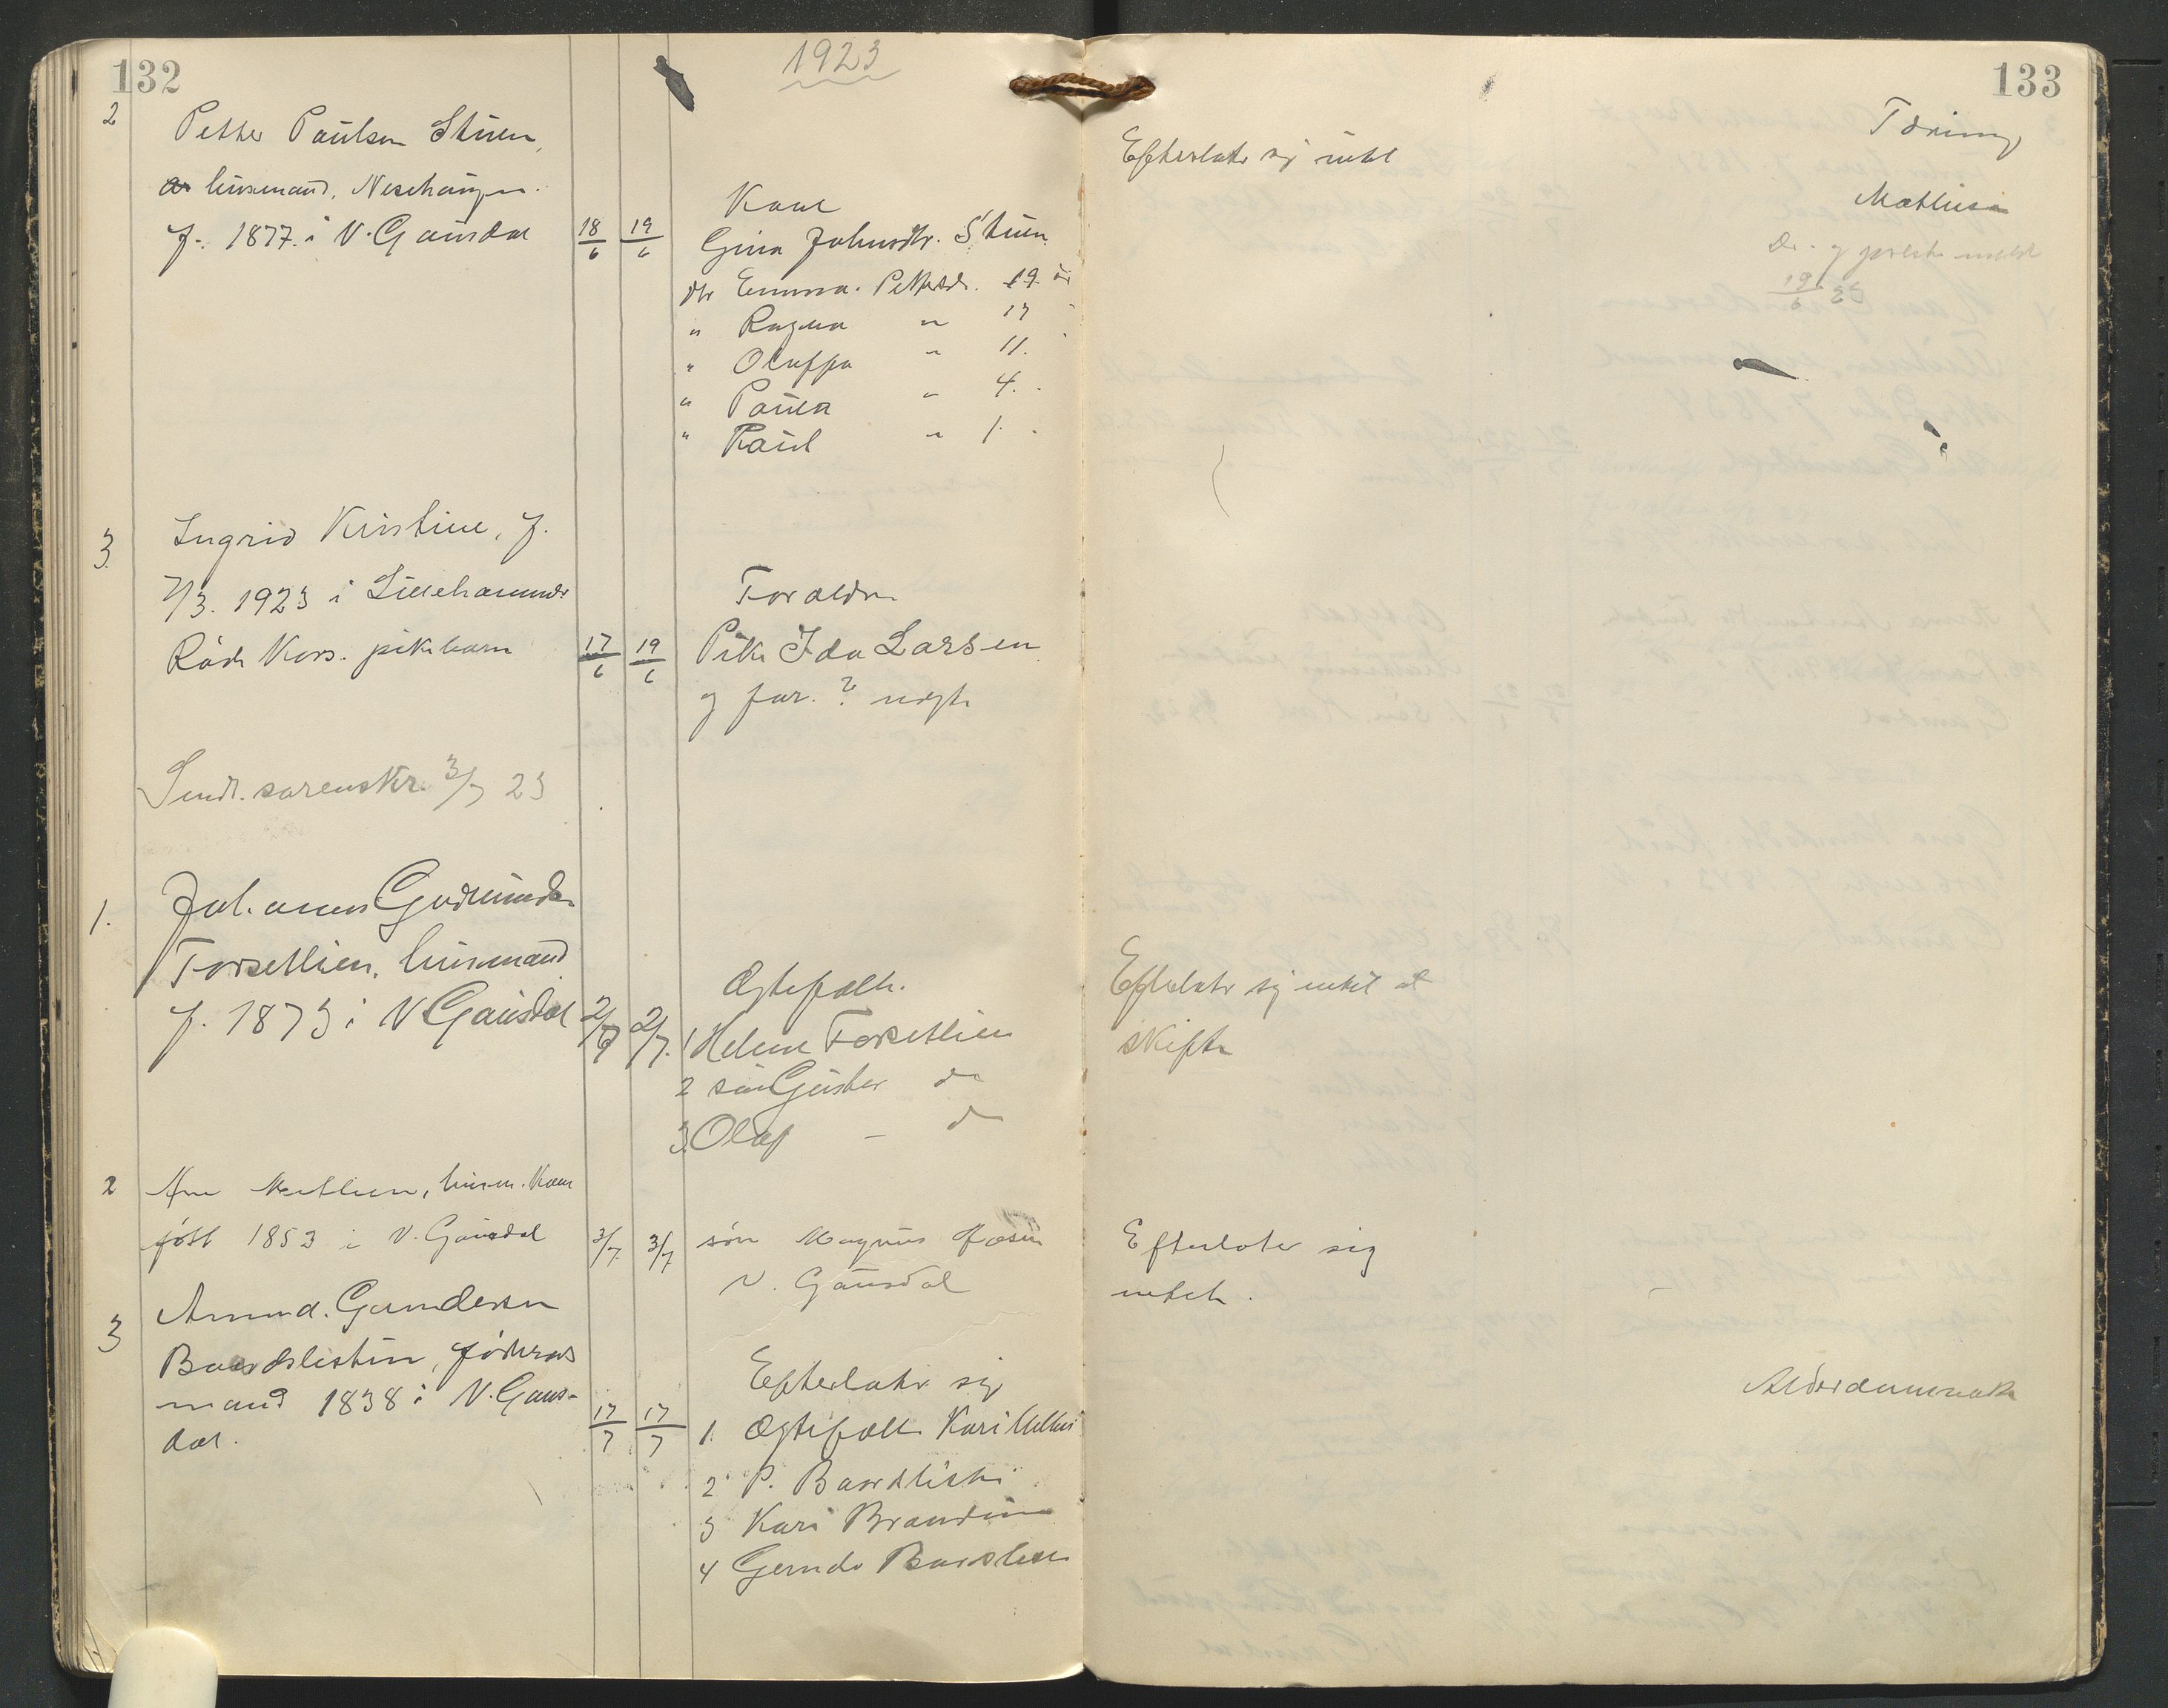 132
1923
133
2
Petter Paulsen Stuen,
husmand, Neschaugen.
f. 1877. i V. Gausdal
18/6
19/6
Kone
Gina Johnsdtr. Stuen
dtr Emma. Pettersdr. 19 år
" Ragna " 17 "
" Oluffa " 11. "
" Paula " 4. "
" Paul " 1. "
Efterlater sig intet
Tæring
Mathiesen
Dr. og prest meldt
19/6 23
3.
Ingrid Kristine, f.
7/3. 1923 i Lillehammer
Røde Kors. pikebarn
17/6
19/6
Foreldre
Pike Ida Larsen
og far. ? negte
Sendt sorenskr. 3/7 23
1.
Johannes Gudmunds
Forsetlien, husmand
f. 1873 i V Gausdal
2/7
2/7.
Ægtefælle.
1 Helene Forsetlien
2 søn Gustav do
3. Olaf - do
Efterlater sig intet at
skifte
2
Ane Mætlien, husm. Kone
født 1853 i V. Gausdal
3/7
3/7
søn Magnus
V. Gausdal
Efterlater sig
intet.
3
Amund. Gundersen
Baardslistuen, føderaads
mand 1838 i V. Gaus-
dal.
17/7
17/7
Efterlater sig
1. Ægtefælle Kari
2 P. Baardslistu
3 Kari
4
Alderdomssvakh